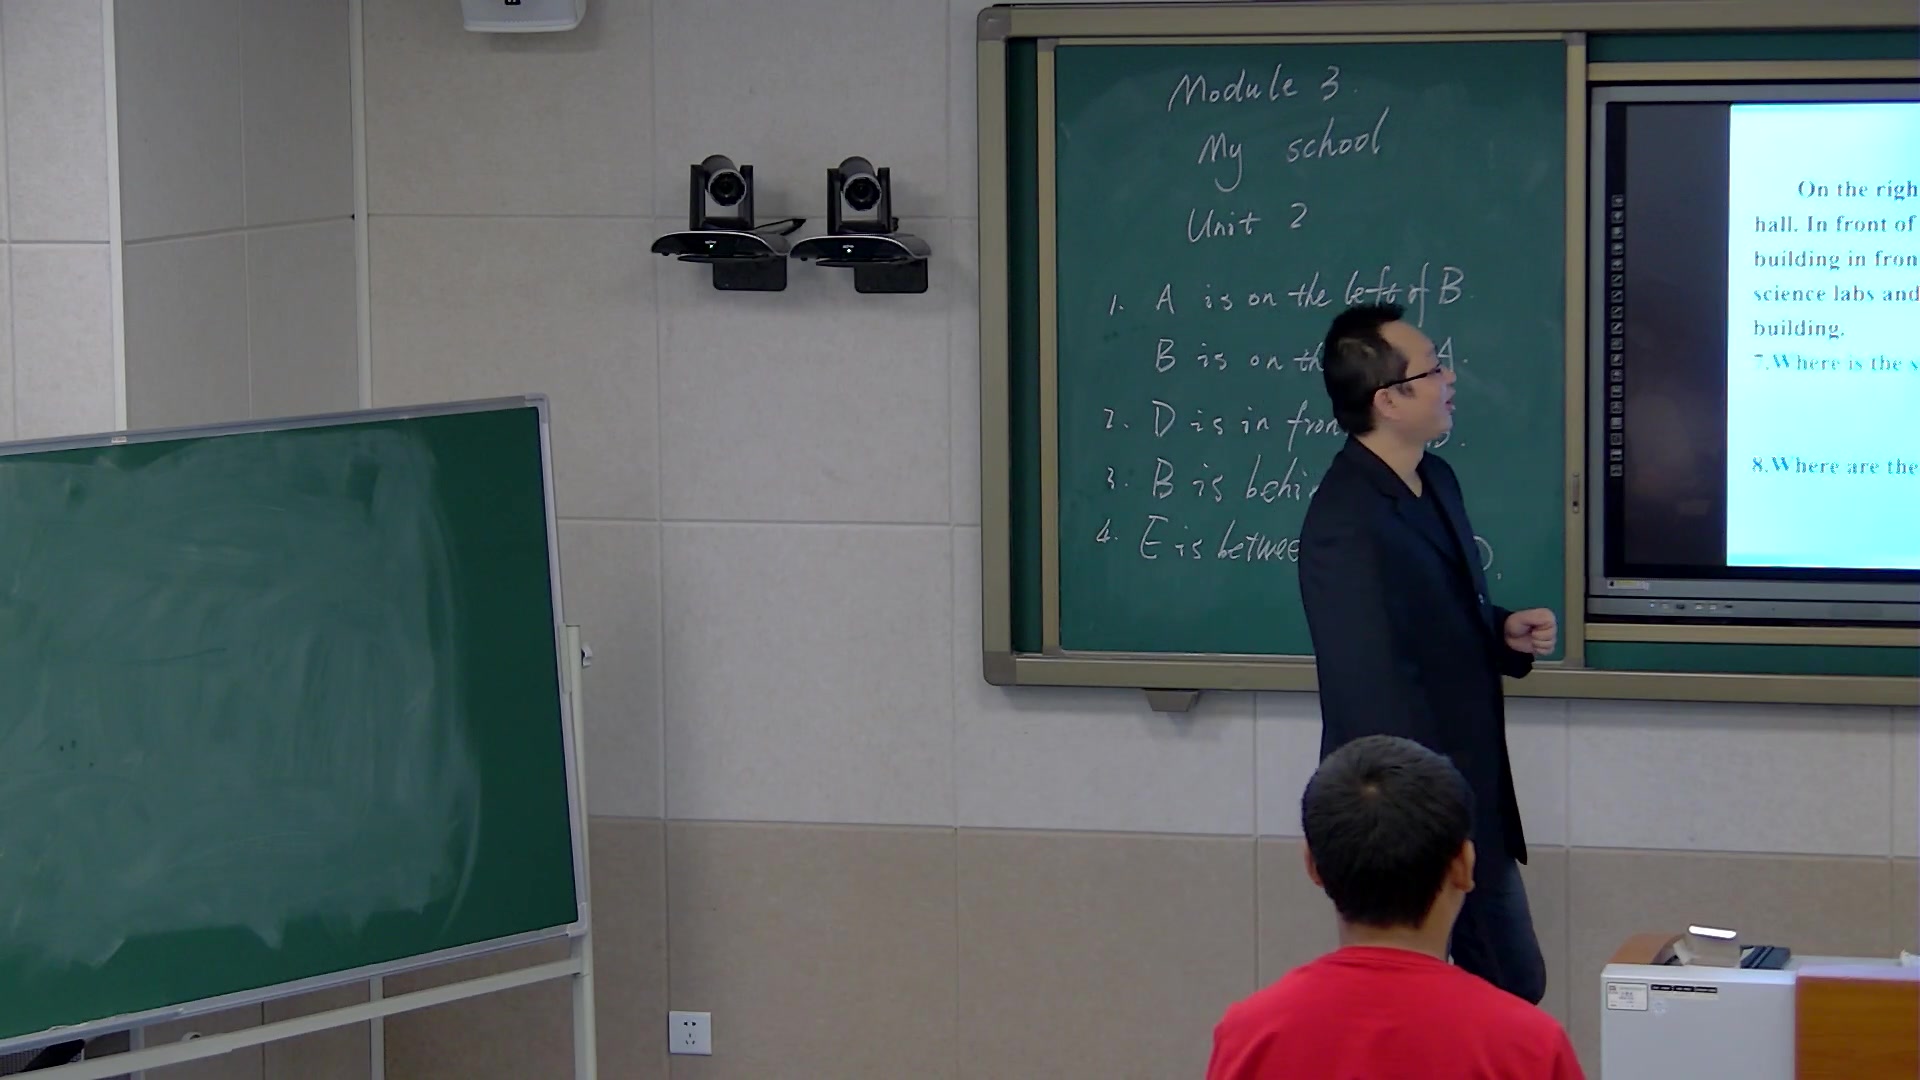 Module 3.
My school
Unit 2
1. A is on the left of B.
B is on th A.
2. D is in fron B.
3. B is behi
4. E is betwee D.
On the righ
hall. In front of
building in fron
science labs and
building.
7.Where is the s
8.Where are the